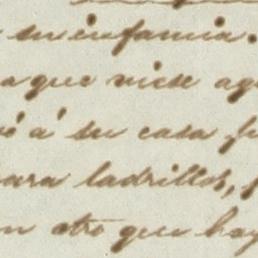 su infamia.
a que viese ag
é á su casa fu
para ladrillos,
n otro que hay